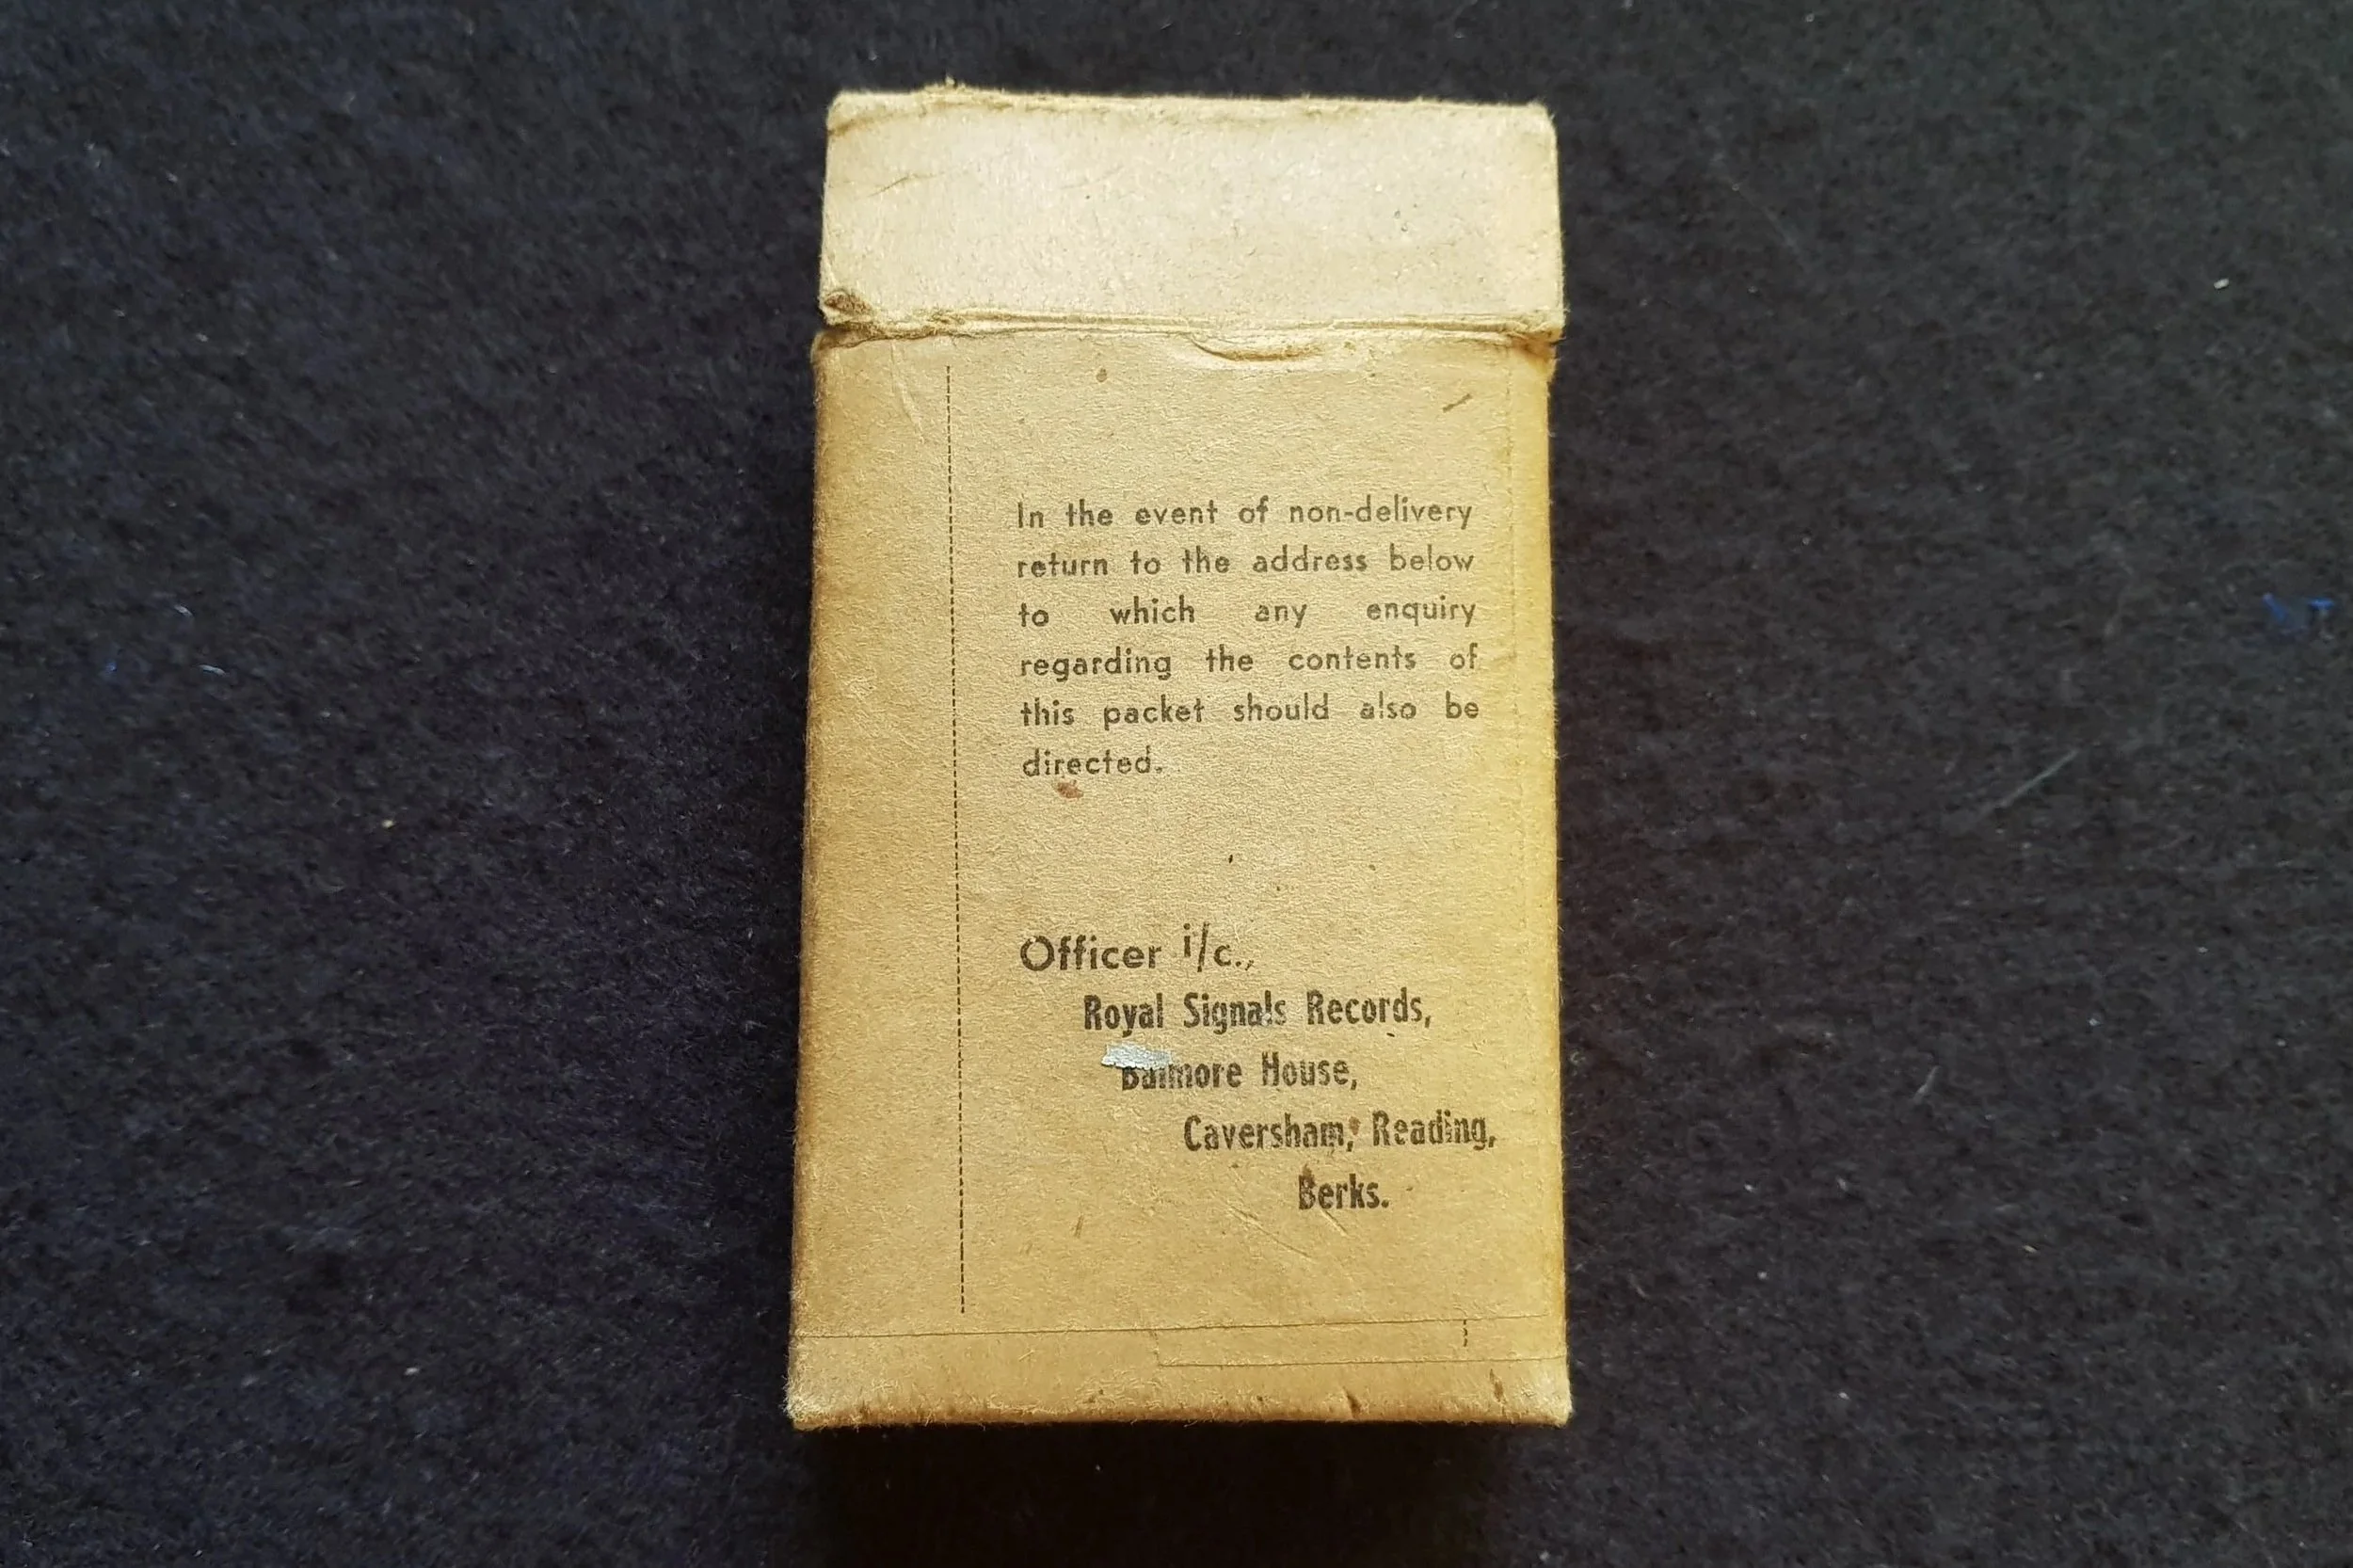 In the event of non-delivery
return to the address below
to which any enquiry
regarding the contents of
this packet should also be
directed.
Officer i/c.,
Royal Signals Records,
Balmore House,
Caversham, Reading,
Berks.